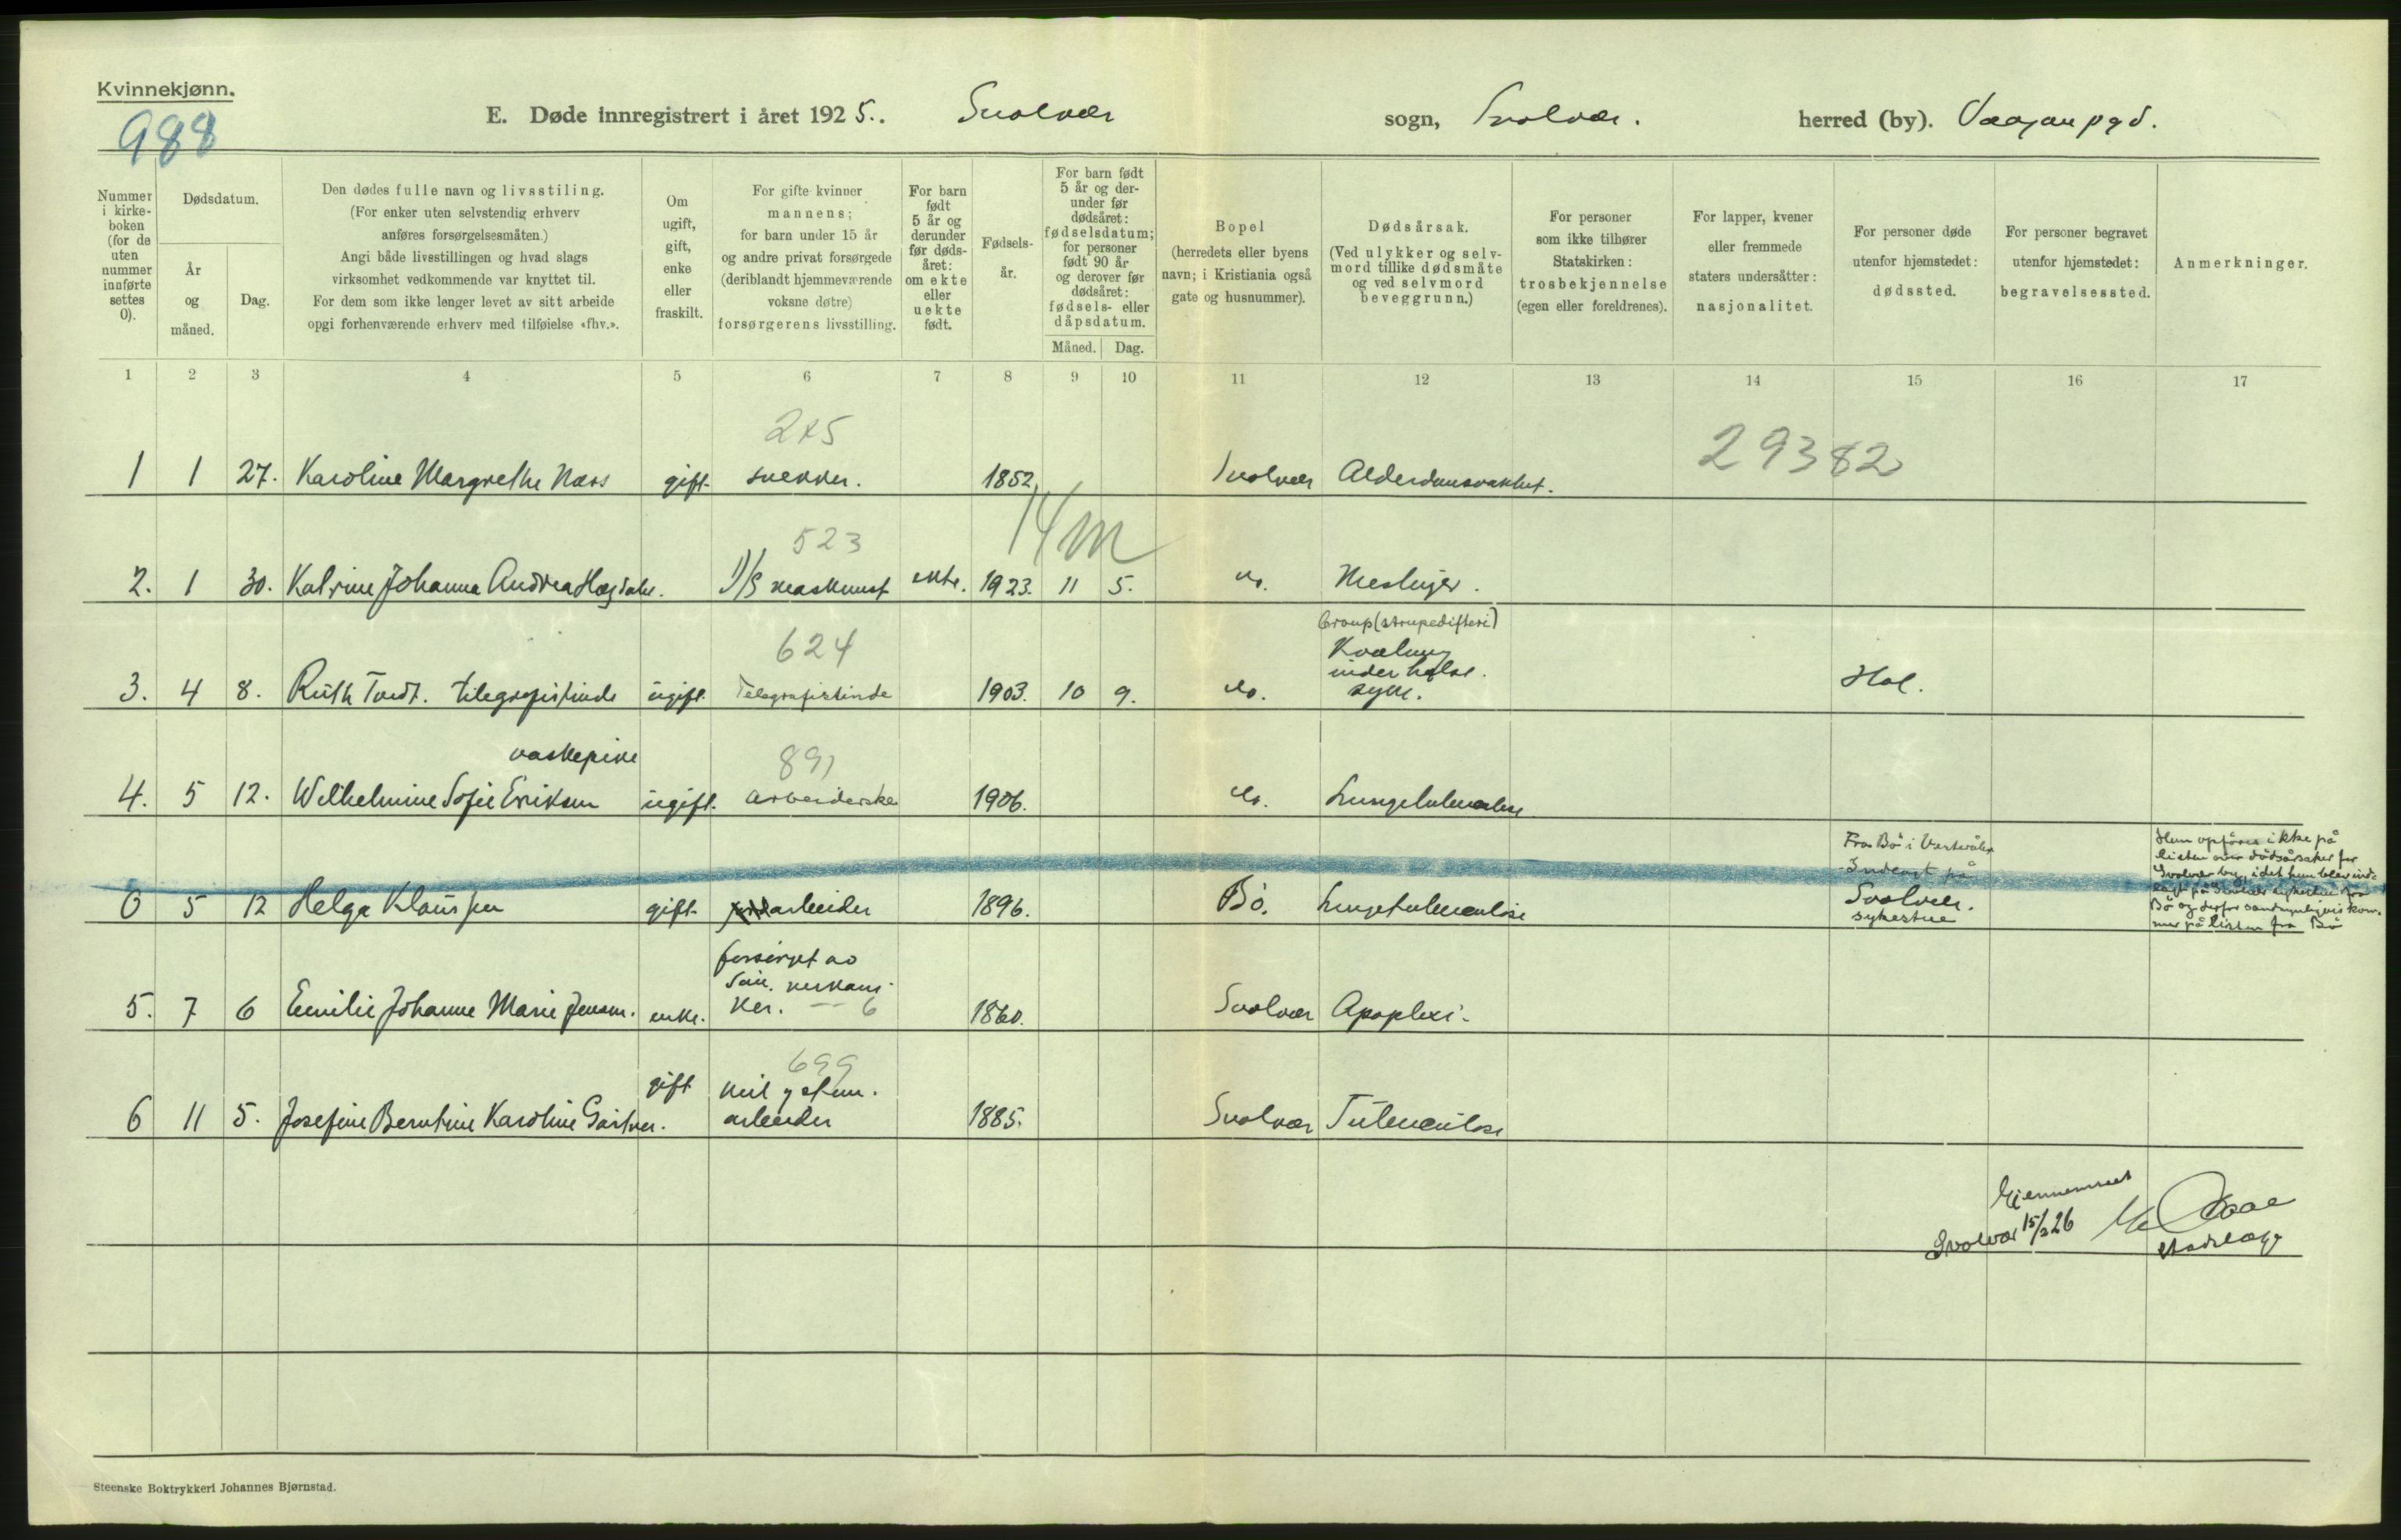 Kvinnekjønn.
988
E. Døde innregistrert i året 1925. Svolvær sogn, Svolvær. herred (by). Vaagan pgd.
Nummer i kirkeboken (for de uten nummer innførte settes 0).
Dødsdatum.
År og måned.
Dag.
Den dødes fulle navn og livsstiling.
(For enker uten selvstendig erhverv anføres forsørgelsesmåten.)
Angi både livsstillingen og hvad slags virksomhet vedkommende var knyttet til.
For dem som ikke lenger levet av sitt arbeide opgi forhenværende erhverv med tilføielse «fhv.».
Om ugift, gift, enke eller fraskilt.
For gifte kvinner mannens; for barn under 15 år og andre privat forsørgede (deriblandt hjemmeværende voksne døtre) forsørgerens livsstilling.
For barn født 5 år og derunder før dødsåret: om ekte eller uekte født.
Fødselsår.
For barn født 5 år og derunder før dødsåret: fødselsdatum; for personer født 90 år og derover før dødsåret: fødsels- eller dåpsdatum.
Måned. Dag.
Bopel
(herredets eller byens navn; i Kristiania også gate og husnummer).
Dødsårsak.
(Ved ulykker og selvmord tillike dødsmåte og ved selvmord beveggrunn.)
For personer som ikke tilhører Statskirken: trosbekjennelse (egen eller foreldrenes).
For lapper, kvener eller fremmede staters undersåtter: nasjonalitet.
For personer døde utenfor hjemstedet: dødssted.
For personer begravet utenfor hjemstedet: begravelsessted.
Anmerkninger.
1 2 3 4 5 6 7 8 9 10 11 12 13 14 15 16 17
29382
1 1 27. Karoline Margrethe Næss gift snekker. 1852. Svolvær Alderdomssvakhet.
523 14 m
2. 1 30. Katrine Johanna Andrea ekte. 1923. 11 5. do. Meslinger.
624 Croup (strupedifteri)
3. 4 8. Ruth telegrafistinde ugift. Telegrafistinde 1903. 10 9. do. Kvælning under halssyke. Hol.
vaskepike 891
4. 5 12. Wilhelmine Sofie Eriksen ugift. arbeiderske 1906. do. Lungetuberkulose
Fra Bø i Vesterålen
Indlagt på
0 5 12 Helga Klaussen gift arbeider 1896. Bø. Lungetuberkulose Svolvær sykestue
Hun opføres ikke på
listen over dødsårsaker for
Svolvær by, idet hun blev ind-
lagt på Svolvær sykestue fra
Bø og derfor sandsynligvis kom-
mer på listen fra Bø
5. 7 6 Emilie Johanne Marie Jensen. enke. forsørget av søn. mekaniker. 6 1860. Svolvær Apoplexi.
699
6 11 5. Josefine Berntine Karoline Gartner. gift arbeider 1885. Svolvær Tuberkulose
Gjennemset
Svolvær 15/2 26
stadslæge
Steenske Boktrykkeri Johannes Bjørnstad.